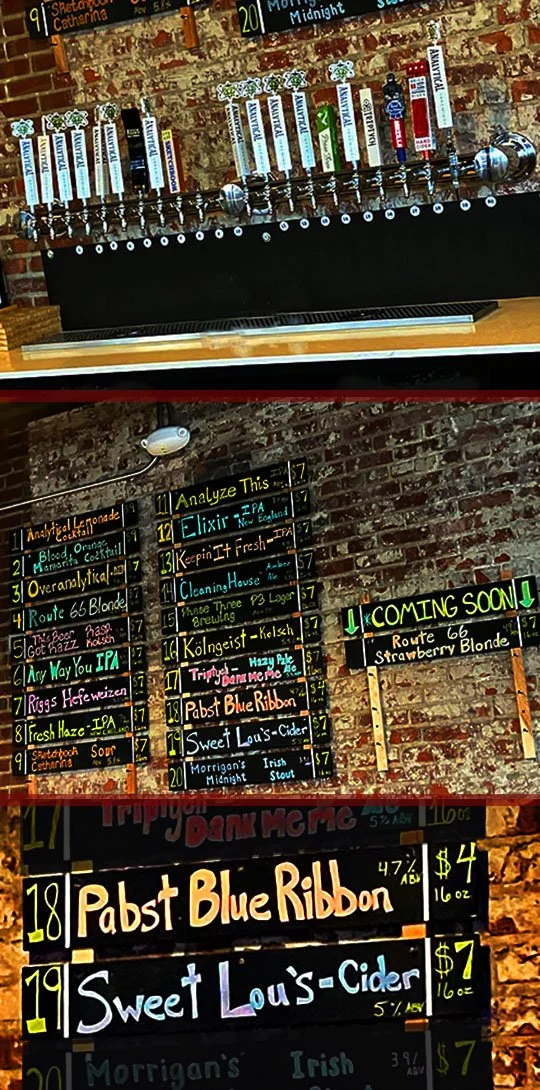 9 Sketchbook
Catharina
20 Morrigan's
Midnight
ANALYTICAL
ANALYTICAL
ANALYTICAL
ANALYTICAL
ANALYTICAL
ANALYTICAL
ANALYTICAL
ANALYTICAL
ANALYTICAL
ANALYTICAL
TRIPTYCH
HARD
CIDER
ANALYTICAL
1 Analytical Lemonade
Cocktail
2 Blood Orange
Margarita Cocktail $7
3 Overanalytical $7
4 Route 66 Blonde $7
5 This Beer Rasp.
Got Razz Kolsch $7
6 Any Way You IPA $7
7 Riggs Hefeweizen $7
8 Fresh Haze-IPA $7
9 Sketchbook Sour $7
Catharina
11 Analyze This IPA $7
12 Elixir-IPA $7
New England
13 Keepin It Fresh-IPA $7
14 Cleaning House Amber Ale $7
15 Phase Three P3 Lager $7
Brewing
16 Kolngeist-Kolsch $7
17 Triptych- Hazy Pale Ale $7
Dank Meme
18 Pabst Blue Ribbon $4
19 Sweet Lou's-Cider $7
20 Morrigan's Irish $7
Midnight Stout
*COMING SOON
Route 66 $7
Strawberry Blonde
17 Triptych
Dank Meme 5% ABV 16oz
18 Pabst Blue Ribbon 4.7% ABV $4
16 oz
19 Sweet Lou's-Cider $7
5% ABV 16 oz
20 Morrigan's Irish $7